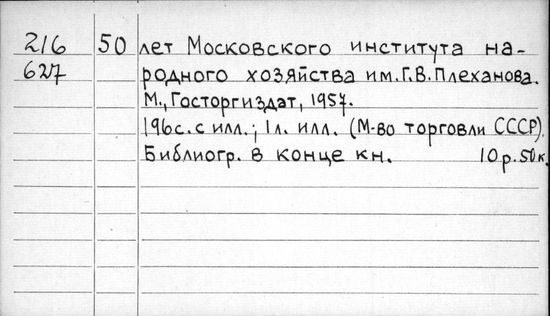 216 50 лет Московского института на-
627 родного хозяйства им. Г. В. Плеханова.
М., Госторгиздат, 1957.
196с. с илл.; 1л. илл. (М-во торговли СССР).
Библиогр. в конце кн. 10 р. 50 к.